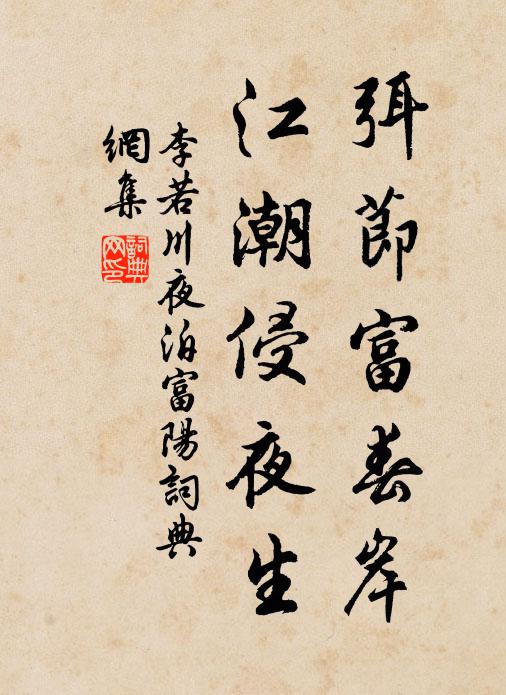 弭節富春岸
江潮侵夜生
李若川夜泊富陽詞典
網集
詞典
网印